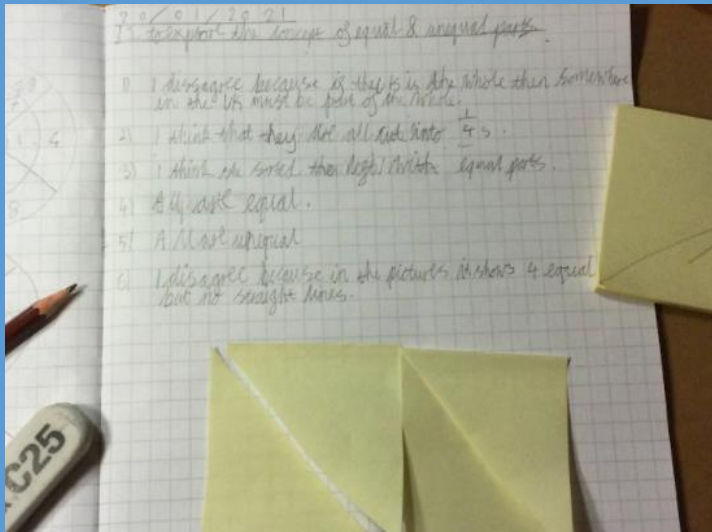 20/01/2021
to explore the concept of equal & unequal parts.
1) I dissagree because if the is the whole then somewhere
in the UK must be part of the whole.
2) I think that they are all cut into 1/4 s.
3) I think she sorted them equal parts.
4) All are equal.
5) All are unequal
6) I disagree because in the pictures it shows 4 equal
but no straight lines.
4
8
C25